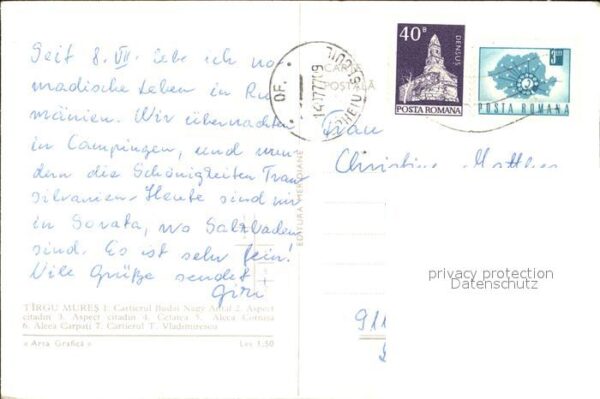 Seit 8. VII. lebe ich no-
madische Leben in Ru-
mänien. Wir übernachten
in Campingen, und wun-
dern die Schönigkeiten Tran-
silvanien. Heute sind wir
in Sovata, wo Salzbaden
sind. Es ist sehr fein!
Vile Grüße sendet
TÎRGU MUREȘ 1. Cartierul Budai Nagy Antal 2. Aspect
citadin 3. Aspect citadin 4. Cetatea 5. Aleea Cornișa
6. Aleea Carpați 7. Cartierul T. Vladimirescu
« Arta Grafică »
Lei 1,50
EDITURA MERIDIANE
CARTE
POȘTALĂ
OF.
GHEORGHENI
40 B
DENSUȘ
POSTA ROMANA
POSTA ROMANA
Frau
Christine
privacy protection
Datenschutz
911